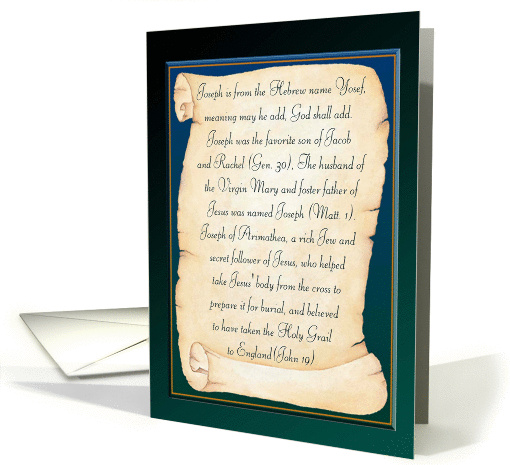 Joseph is from the Hebrew name Yosef,
meaning may he add, God shall add.
Joseph was the favorite son of Jacob
and Rachel (Gen. 30), The husband of
the Virgin Mary and foster father of
Jesus was named Joseph (Matt. 1).
Joseph of Arimathea, a rich Jew and
secret follower of Jesus, who helped
take Jesus' body from the cross to
prepare it for burial, and believed
to have taken the Holy Grail
to England(John 19)